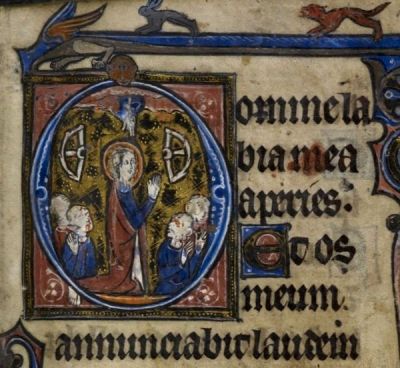 Domine la
bia mea
aperies.
Et os
meum
annunciabit laudem